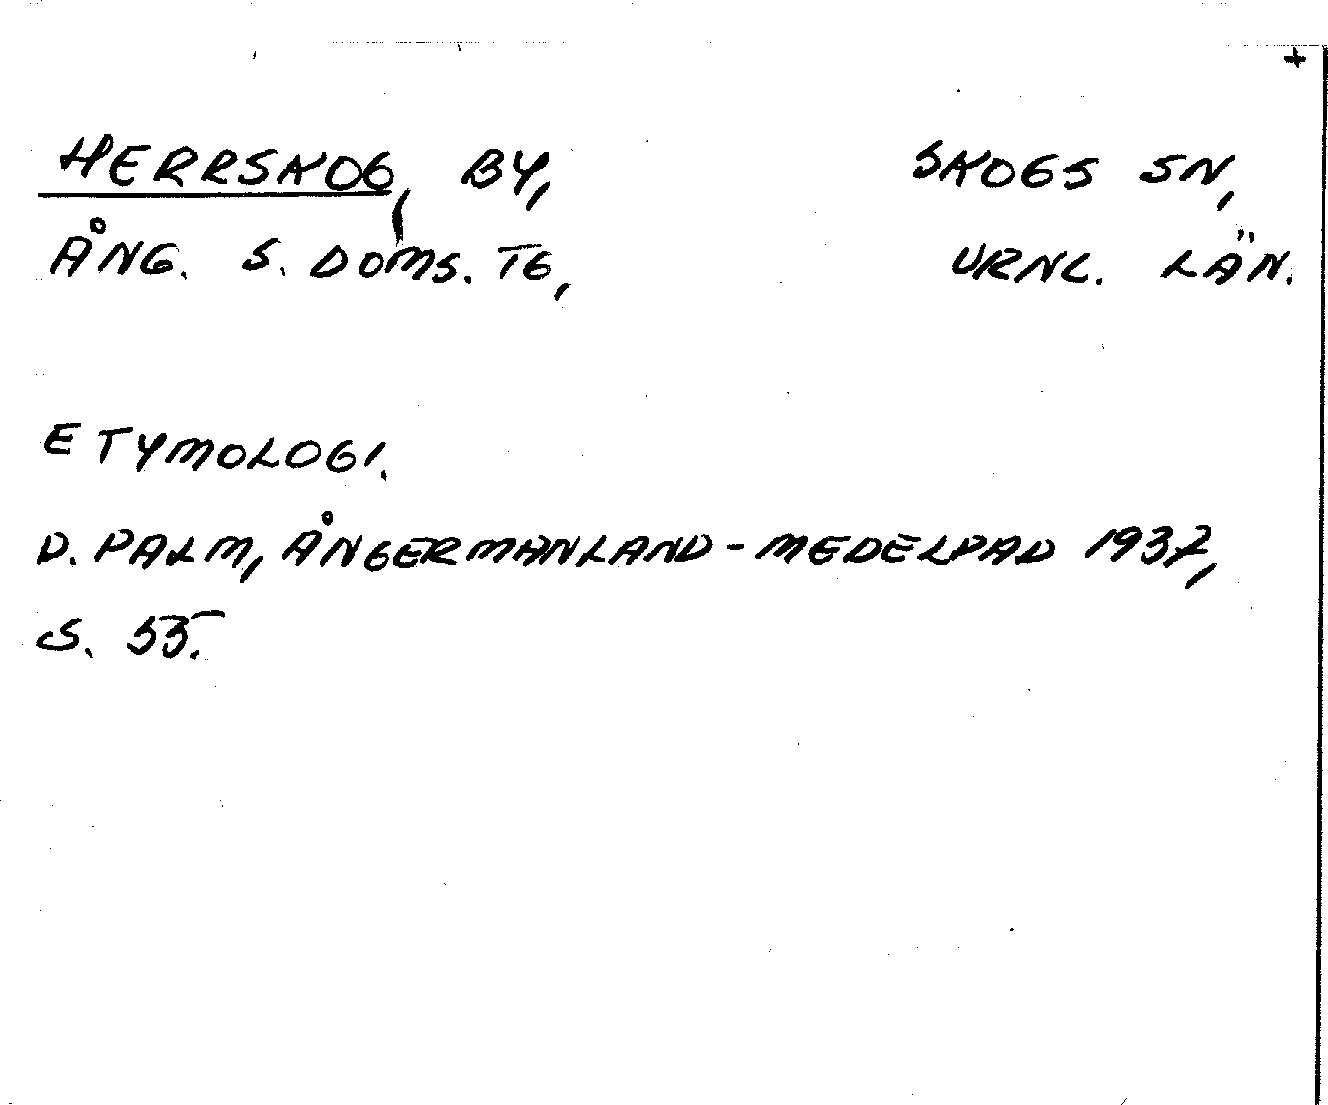 +
HERRSKOG, BY, SKOGS SN,
ÅNG. S. DOMS. TG, VRNL. LÄN.
ETYMOLOGI.
D. PALM, ÅNGERMANLAND - MEDELPAD 1937,
S. 55.